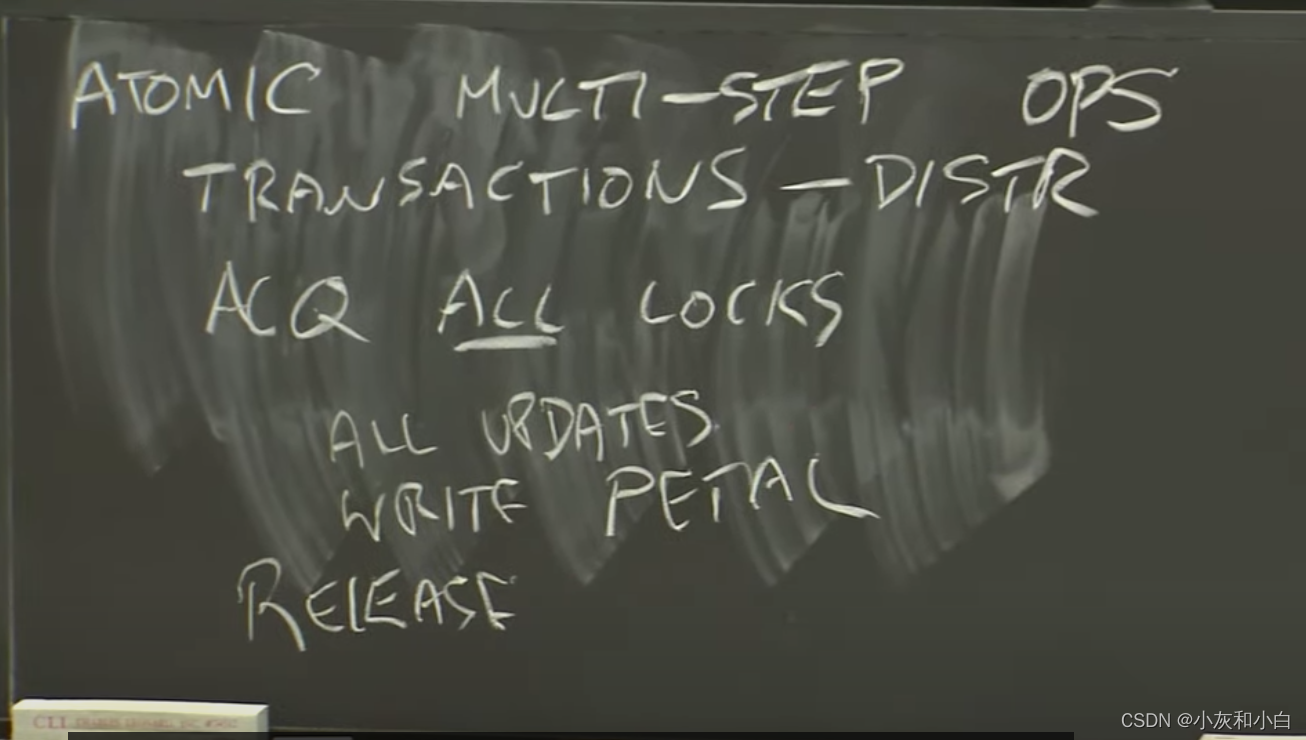 ATOMIC MULTI-STEP OPS
TRANSACTIONS - DISTR
ACQ ALL LOCKS
ALL UPDATES
WRITE PETAL
RELEASE
CLI
CSDN @小灰和小白